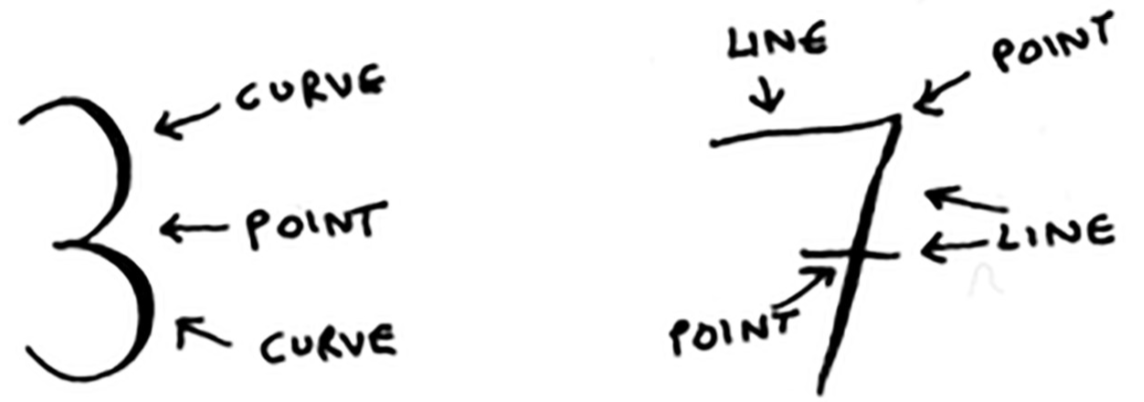 3
CURVE
POINT
CURVE
7
LINE
POINT
LINE
POINT